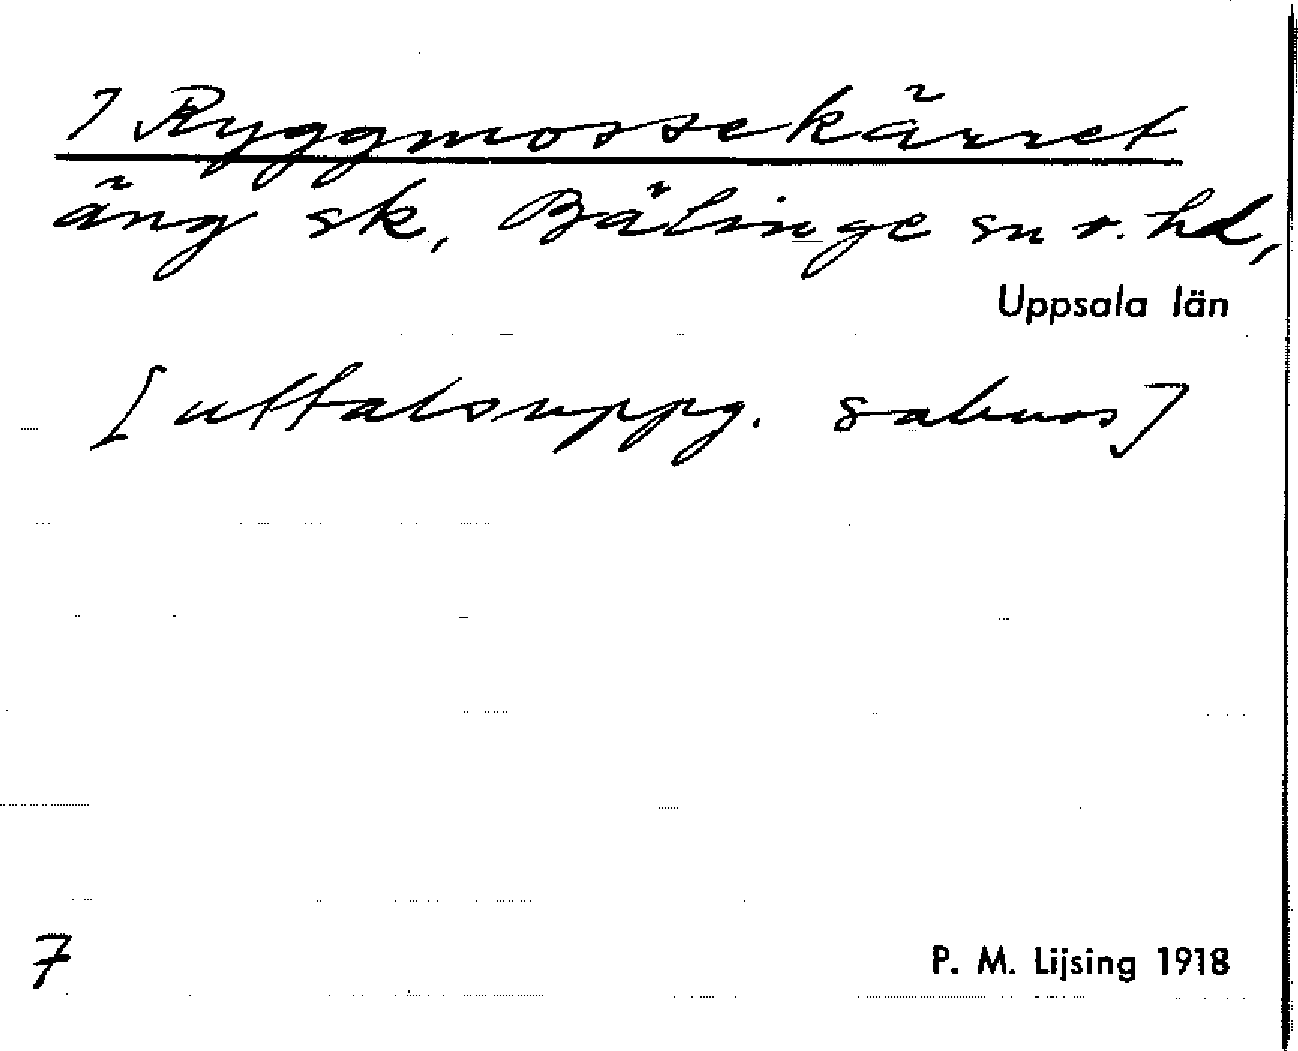 7 Ryggmossekärret
äng sk, Bälinge sn o. hd,
Uppsala län
[uttalsuppg. saknas]
7
P. M. Lijsing 1918